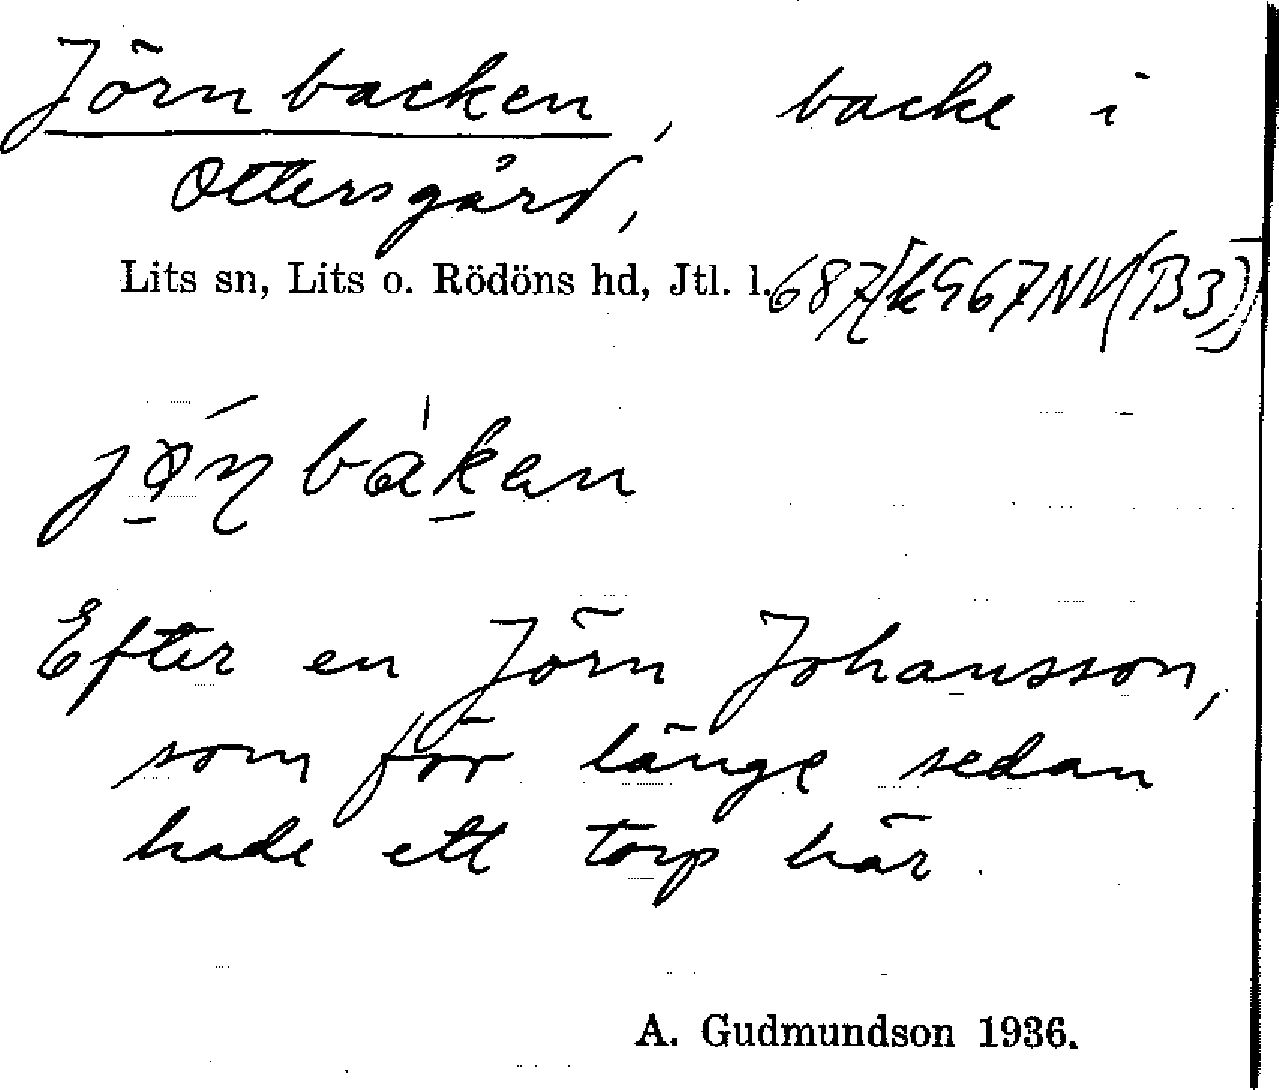 Jörnbacken, backe i
Ottersgård,
Lits sn, Lits o. Rödöns hd, Jtl. l.
Efter en Jörn Johansson,
som för länge sedan
hade ett torp här.
A. Gudmundson 1936.